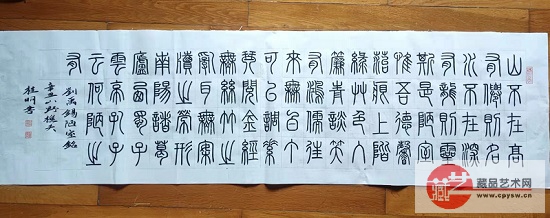 山不在高
有僊則名
水不在深
有龍則靈
斯是陋室
惟吾德馨
苔痕上階
綠草色入
簾青談笑
有鴻儒往
來無白丁
可以調素
琴閱金經
無絲竹之
亂耳無案
牘之勞形
南陽諸葛
廬西蜀子
雲亭孔子
云何陋之
有
劉禹錫陋室銘
辛丑
桂明書
藏艺
藏品艺术网
www.cpysw.cn